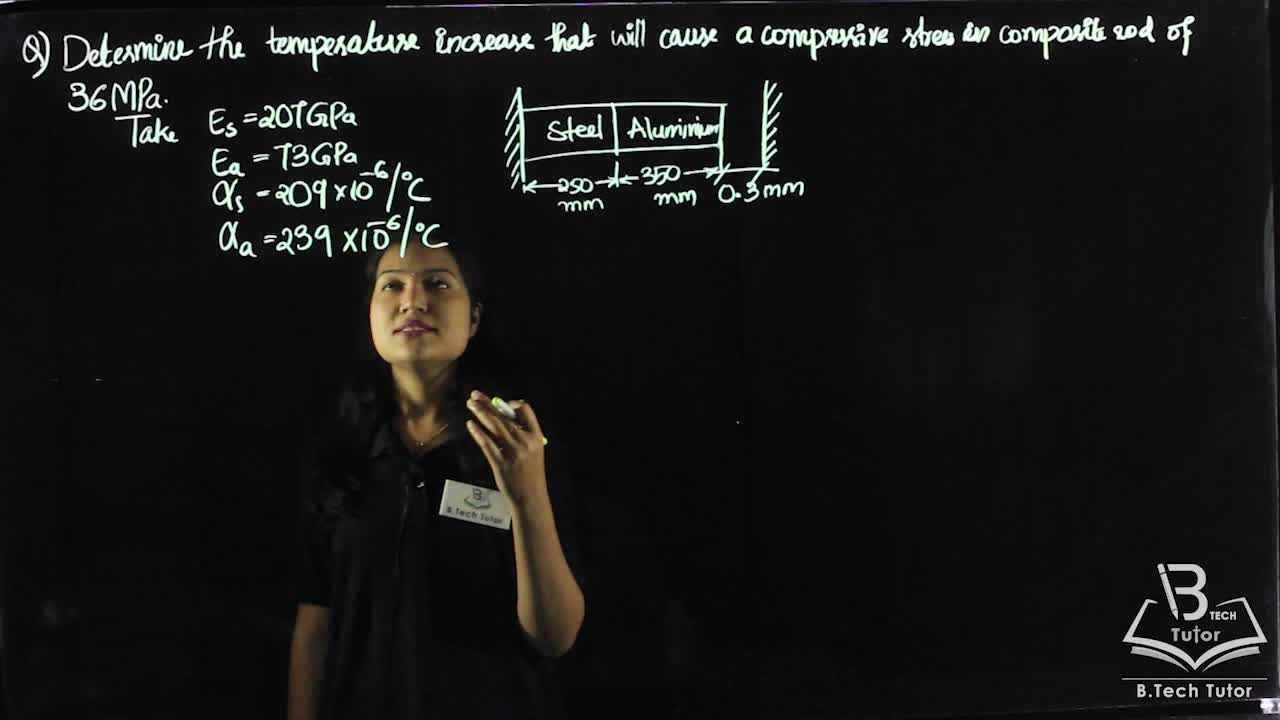 Q) Determine the temperature increase that will cause a compressive stress in composite rod of
36 MPa.
Take
Es = 207GPa
Ea = 73GPa
αs = 209 × 10^-6/°C
αa = 239 × 10^-6/°C
Steel Aluminium
250 mm 350 mm 0.3 mm
B.Tech Tutor
B TECH
Tutor
B.Tech Tutor